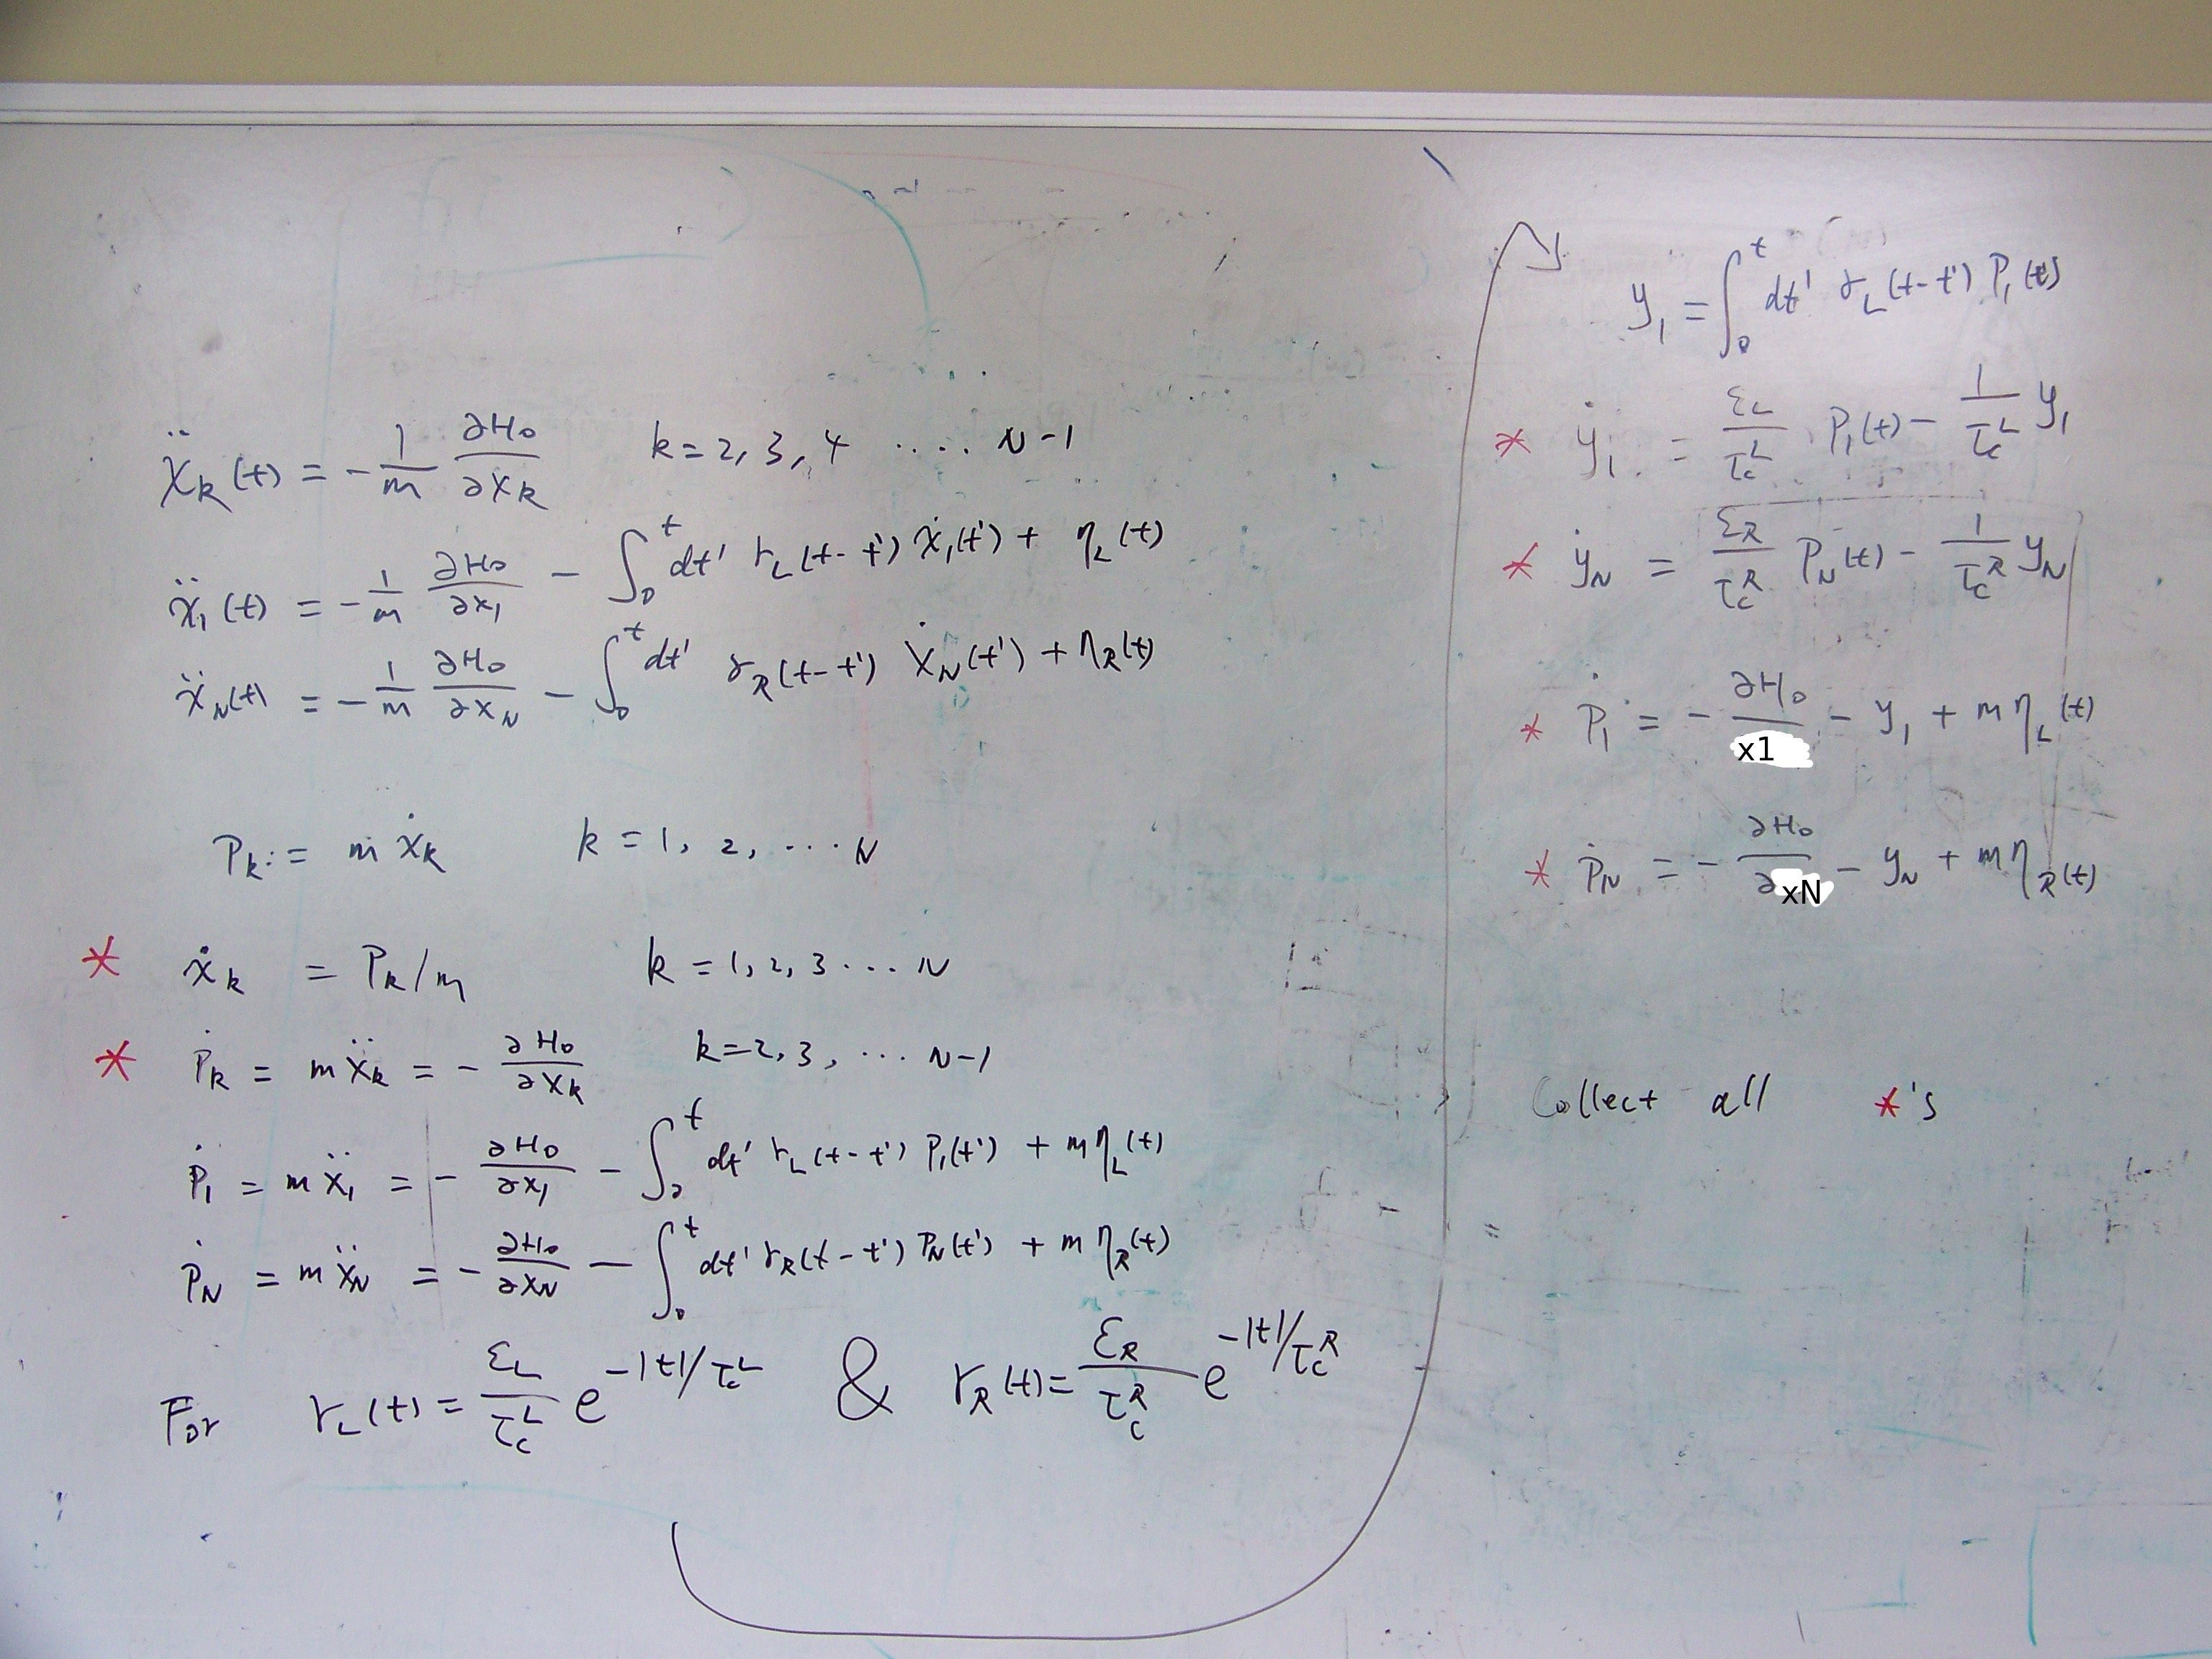 ẍ_k(t) = -1/m ∂H₀/∂x_k k=2,3,4 .... N-1
ẍ₁(t) = -1/m ∂H₀/∂x₁ - ∫₀ᵗ dt' γ_L(t-t') ẋ₁(t') + η_L(t)
ẍ_N(t) = -1/m ∂H₀/∂x_N - ∫₀ᵗ dt' γ_R(t-t') ẋ_N(t') + η_R(t)
P_k := m ẋ_k k = 1, 2, ... N
* ẋ_k = P_k/m k = 1, 2, 3 ... N
* Ṗ_k = m ẍ_k = - ∂H₀/∂x_k k=2,3, ... N-1
Ṗ₁ = m ẍ₁ = - ∂H₀/∂x₁ - ∫₀ᵗ dt' γ_L(t-t') P₁(t') + m η_L(t)
Ṗ_N = m ẍ_N = - ∂H₀/∂x_N - ∫₀ᵗ dt' γ_R(t-t') P_N(t') + m η_R(t)
For γ_L(t) = ε_L/τ_c^L e^(-|t|/τ_c^L) & γ_R(t) = ε_R/τ_c^R e^(-|t|/τ_c^R)
y₁ = ∫₀ᵗ dt' γ_L(t-t') P₁(t')
* ẏ₁ = ε_L/τ_c^L P₁(t) - 1/τ_c^L y₁
* ẏ_N = ε_R/τ_c^R P_N(t) - 1/τ_c^R y_N
* Ṗ₁ = - ∂H₀/x1 - y₁ + m η_L(t)
* Ṗ_N = - ∂H₀/∂xN - y_N + m η_R(t)
Collect all *'s